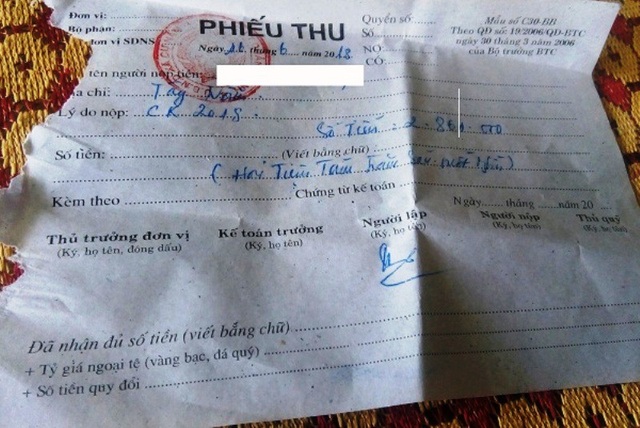 Đơn vị:
Bộ phận:
đơn vị SDNS
PHIẾU THU
Ngày 12 tháng 6 năm 2018
Quyển số:
Số
NỢ
CÓ
Mẫu số C30-BB
Theo QĐ số: 19/2006/QĐ-BTC
ngày 30 tháng 3 năm 2006
của Bộ trưởng BTC
tên người nộp tiền:
chỉ: Tây
Lý do nộp: CK 2018
Số Tiền: 2.860.000
Số tiền: (Viết bằng chữ)
(Hai Triệu Tám Trăm Sáu
Kèm theo Chứng từ kế toán
Ngày tháng năm 20
Thủ trưởng đơn vị
(Ký, họ tên, đóng dấu)
Kế toán trưởng
(Ký, họ tên)
Người lập
(Ký, họ tên)
Người nộp
(Ký, họ tên)
Thủ quỹ
(Ký, họ tên)
Đã nhận đủ số tiền (viết bằng chữ)
+ Tỷ giá ngoại tệ (vàng bạc, đá quý)
+ Số tiền quy đổi